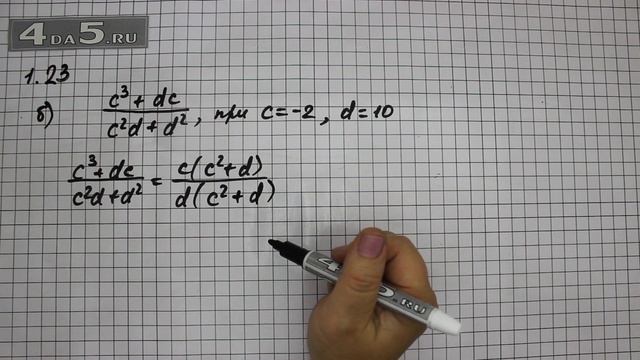 4DA5.RU
1.23
б) (c³ + dc)/(c²d + d²), при c = -2, d = 10
(c³ + dc)/(c²d + d²) = c(c² + d)/d(c² + d)
4DA5.RU